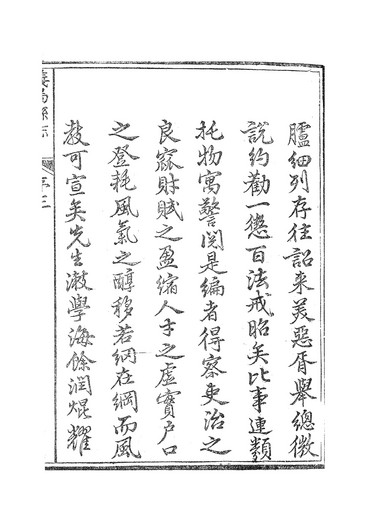 臚細列存往詔來美惡胥舉總徵
說約勸一懲百法戒昭矣比事連類
托物寓警閱是編者得察吏治之
良窳財賦之盈縮人才之虛實户口
之登耗風氣之醇移若綱在綱而風
教可宣矣先生瀲學海餘潤焜耀
縣志
序三